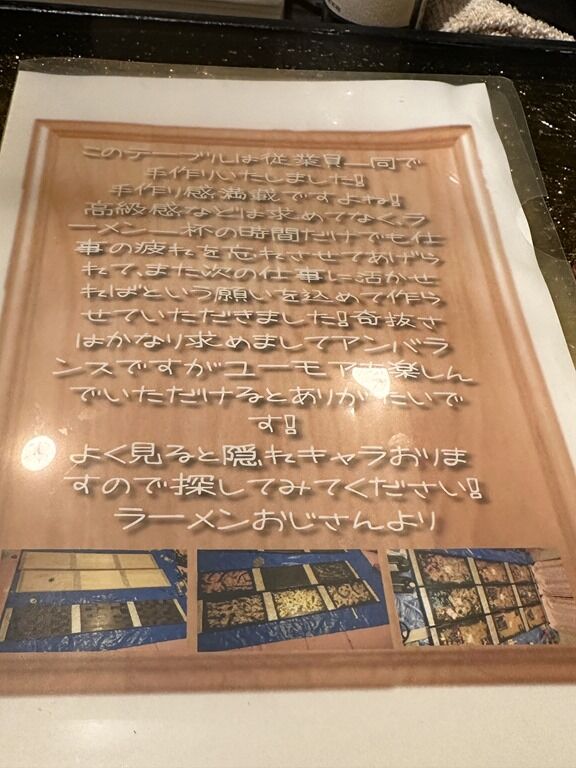 このテーブルは従業員一同で
手作りいたしました!
手作り感満載ですよね!
高級感などは求めてなく、ラ
ーメン一杯の時間だけでも仕
事の疲れを忘れさせてあげら
れて、また次の仕事に活かせ
ればという願いを込めて作ら
せていただきました!奇抜さ
はかなり求めましてアンバラ
ンスですがユーモアを楽しん
でいただけるとありがたいで
す!
よく見ると隠れキャラおりま
すので探してみてください!
ラーメンおじさんより